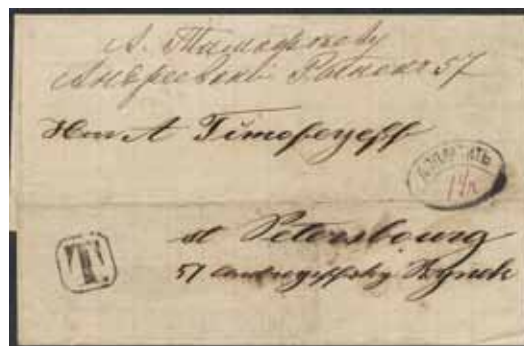 А. Тимофееву
Андреевский Рынокъ 57
Herr A Timofeyeff
ДОПЛАТИТЬ
14к
St Petersbourg
T.
57 Andreyeffsky Rynok